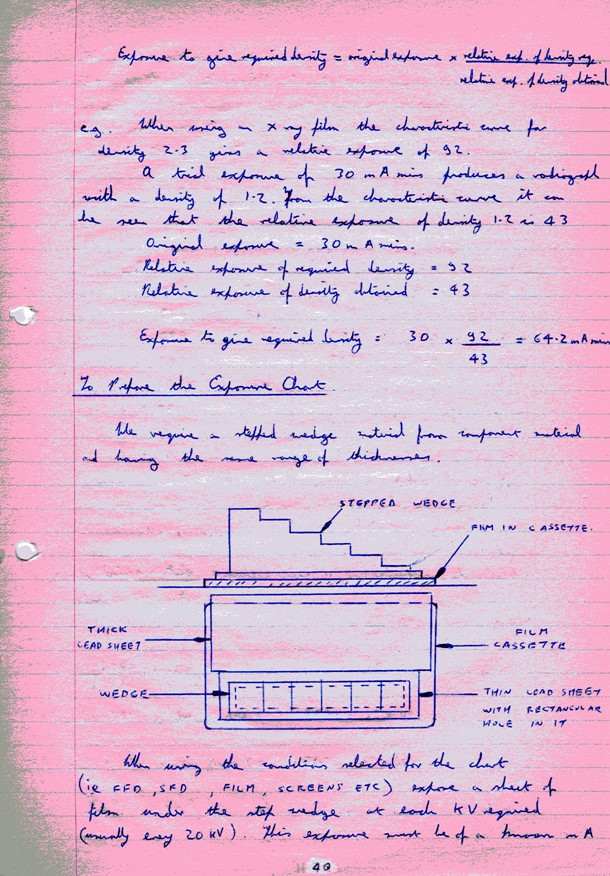 Exposure to give required density = original exposure × relative exp. of density req.
relative exp. of density obtained
e.g. When using an x ray film the characteristic curve for
density 2.3 gives a relative exposure of 92.
A trial exposure of 30 mA mins produces a radiograph
with a density of 1.2. From the characteristic curve it can
be seen that the relative exposure of density 1.2 is 43
Original exposure = 30 mA mins.
Relative exposure of required density = 92
Relative exposure of density obtained = 43
Exposure to give required density = 30 × 92 = 64.2 mA mins
43
To Prepare the Exposure Chart.
We require a stepped wedge material from component material
and having the same range of thicknesses.
STEPPED WEDGE
FILM IN CASSETTE.
THICK
LEAD SHEET
FILM
CASSETTE
WEDGE
THIN LEAD SHEET
WITH RECTANGULAR
HOLE IN IT
When using the conditions selected for the chart
(ie FFD, SFD, FILM, SCREENS ETC) expose a sheet of
film under the step wedge at each KV required
(usually every 20 KV). This exposure must be of a known mA
40